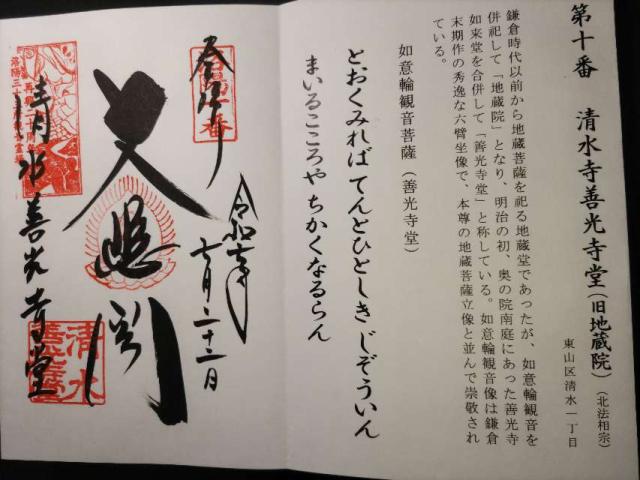 第十番 清水寺善光寺堂(旧地蔵院)(北法相宗)
東山区清水一丁目
鎌倉時代以前から地蔵菩薩を祀る地蔵堂であったが、如意輪観音を
併祀して「地蔵院」となり、明治の初、奥の院南庭にあった善光寺
如来堂を合併して「善光寺堂」と称している。如意輪観音像は鎌倉
末期作の秀逸な六臂坐像で、本尊の地蔵菩薩立像と並んで崇敬され
ている。
如意輪観音菩薩(善光寺堂)
とおくみれば てんとひとしき じぞういん
まいるこころや ちかくなるらん
奉拝
令和六年
七月二十二日
大悲閣
清水善光寺堂
清水